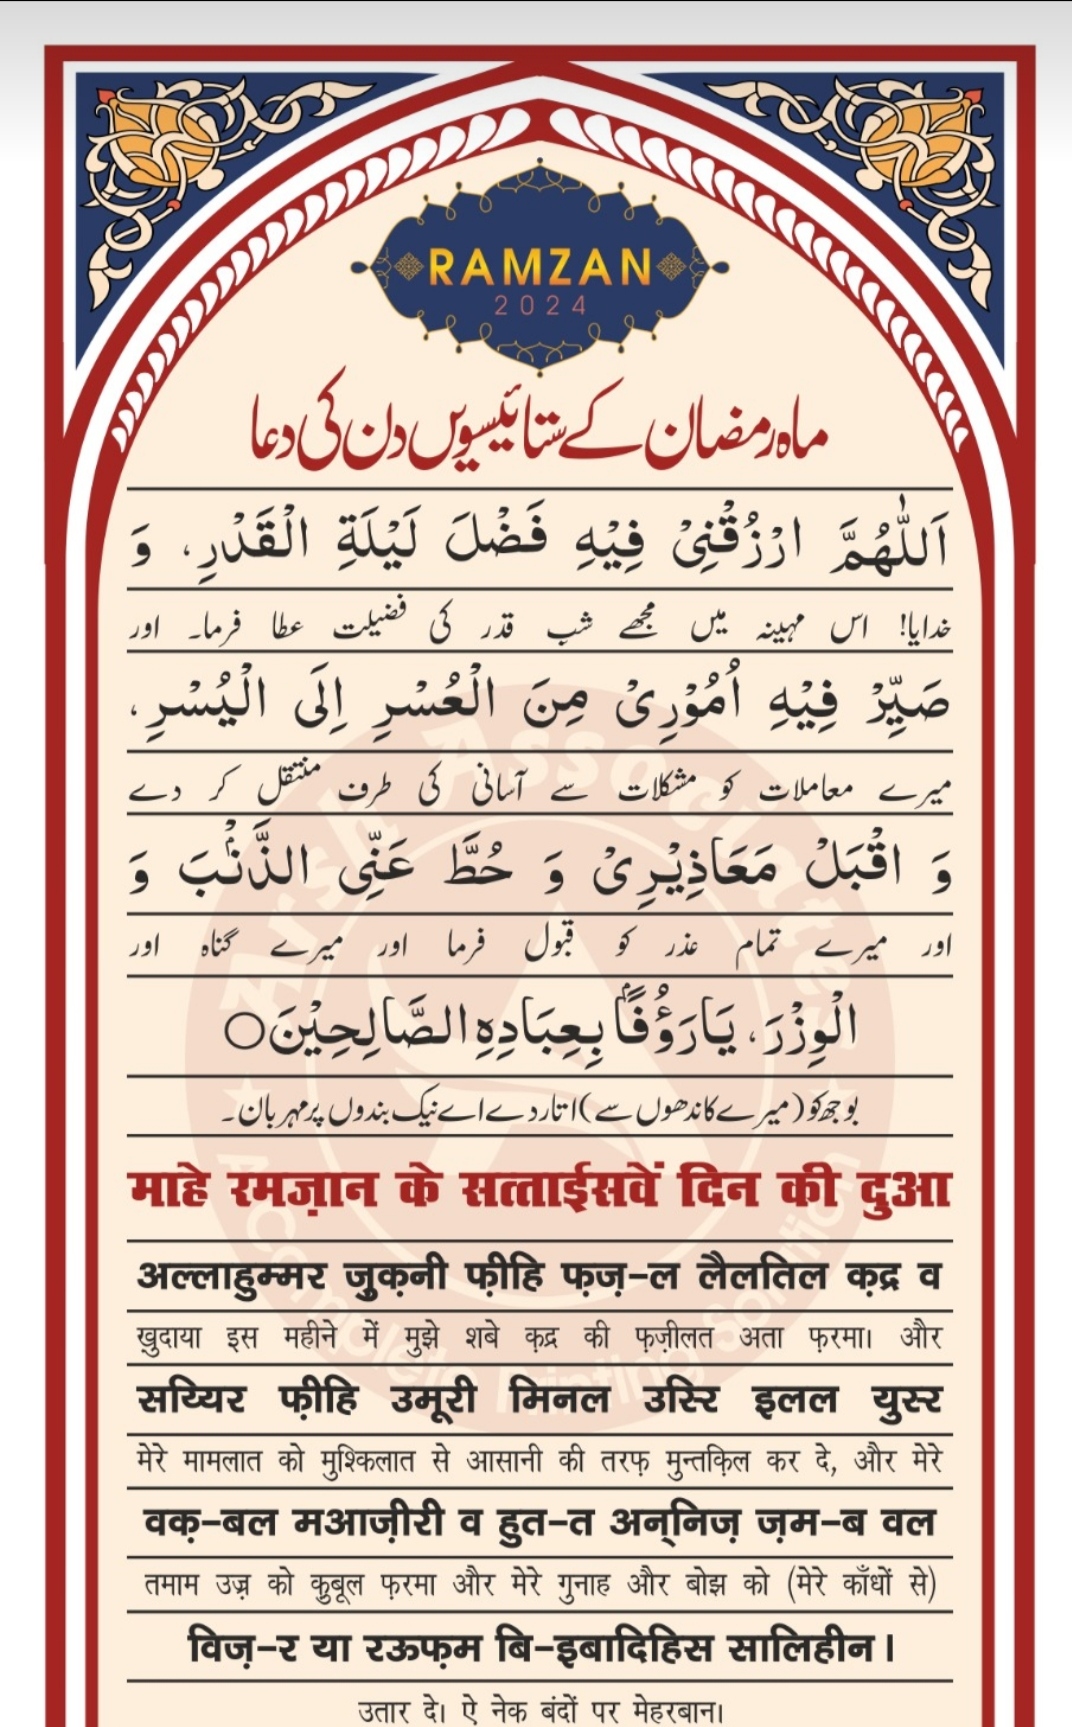 RAMZAN
2024
ماہ رمضان کے ستائیسویں دن کی دعا
اَللّٰهُمَّ ارْزُقْنِیْ فِیْهِ فَضْلَ لَیْلَةِ الْقَدْرِ، وَ
خدایا! اس مہینہ میں مجھے شب قدر کی فضیلت عطا فرما۔ اور
صَیِّرْ فِیْهِ اُمُوْرِیْ مِنَ الْعُسْرِ اِلَی الْیُسْرِ،
میرے معاملات کو مشکلات سے آسانی کی طرف منتقل کر دے
وَ اقْبَلْ مَعَاذِیْرِیْ وَ حُطَّ عَنِّی الذَّنْۢبَ وَ
اور میرے تمام عذر کو قبول فرما اور میرے گناہ اور
الْوِزْرَ، یَارَؤُفًۢا بِعِبَادِهِ الصَّالِحِیْنَ○
بوجھ کو (میرے کاندھوں سے) اتار دے اے نیک بندوں پر مہربان۔
माहे रमज़ान के सत्ताईसवें दिन की दुआ
अल्लाहुम्मर ज़ुक़नी फ़ीहि फ़ज़-ल लैलतिल क़द्र व
ख़ुदाया इस महीने में मुझे शबे क़द्र की फ़ज़ीलत अता फ़रमा। और
सय्यिर फ़ीहि उमूरी मिनल उस्रि इलल युस्र
मेरे मामलात को मुश्किलात से आसानी की तरफ़ मुन्तक़िल कर दे, और मेरे
वक़-बल मआज़ीरी व हुत-त अन्निज़ ज़म-ब वल
तमाम उज़्र को क़ुबूल फ़रमा और मेरे गुनाह और बोझ को (मेरे काँधों से)
विज़-र या रऊफ़म बि-इबादिहिस सालिहीन।
उतार दे। ऐ नेक बंदों पर मेहरबान।
Arsh Associates
A Complete Printing Solution